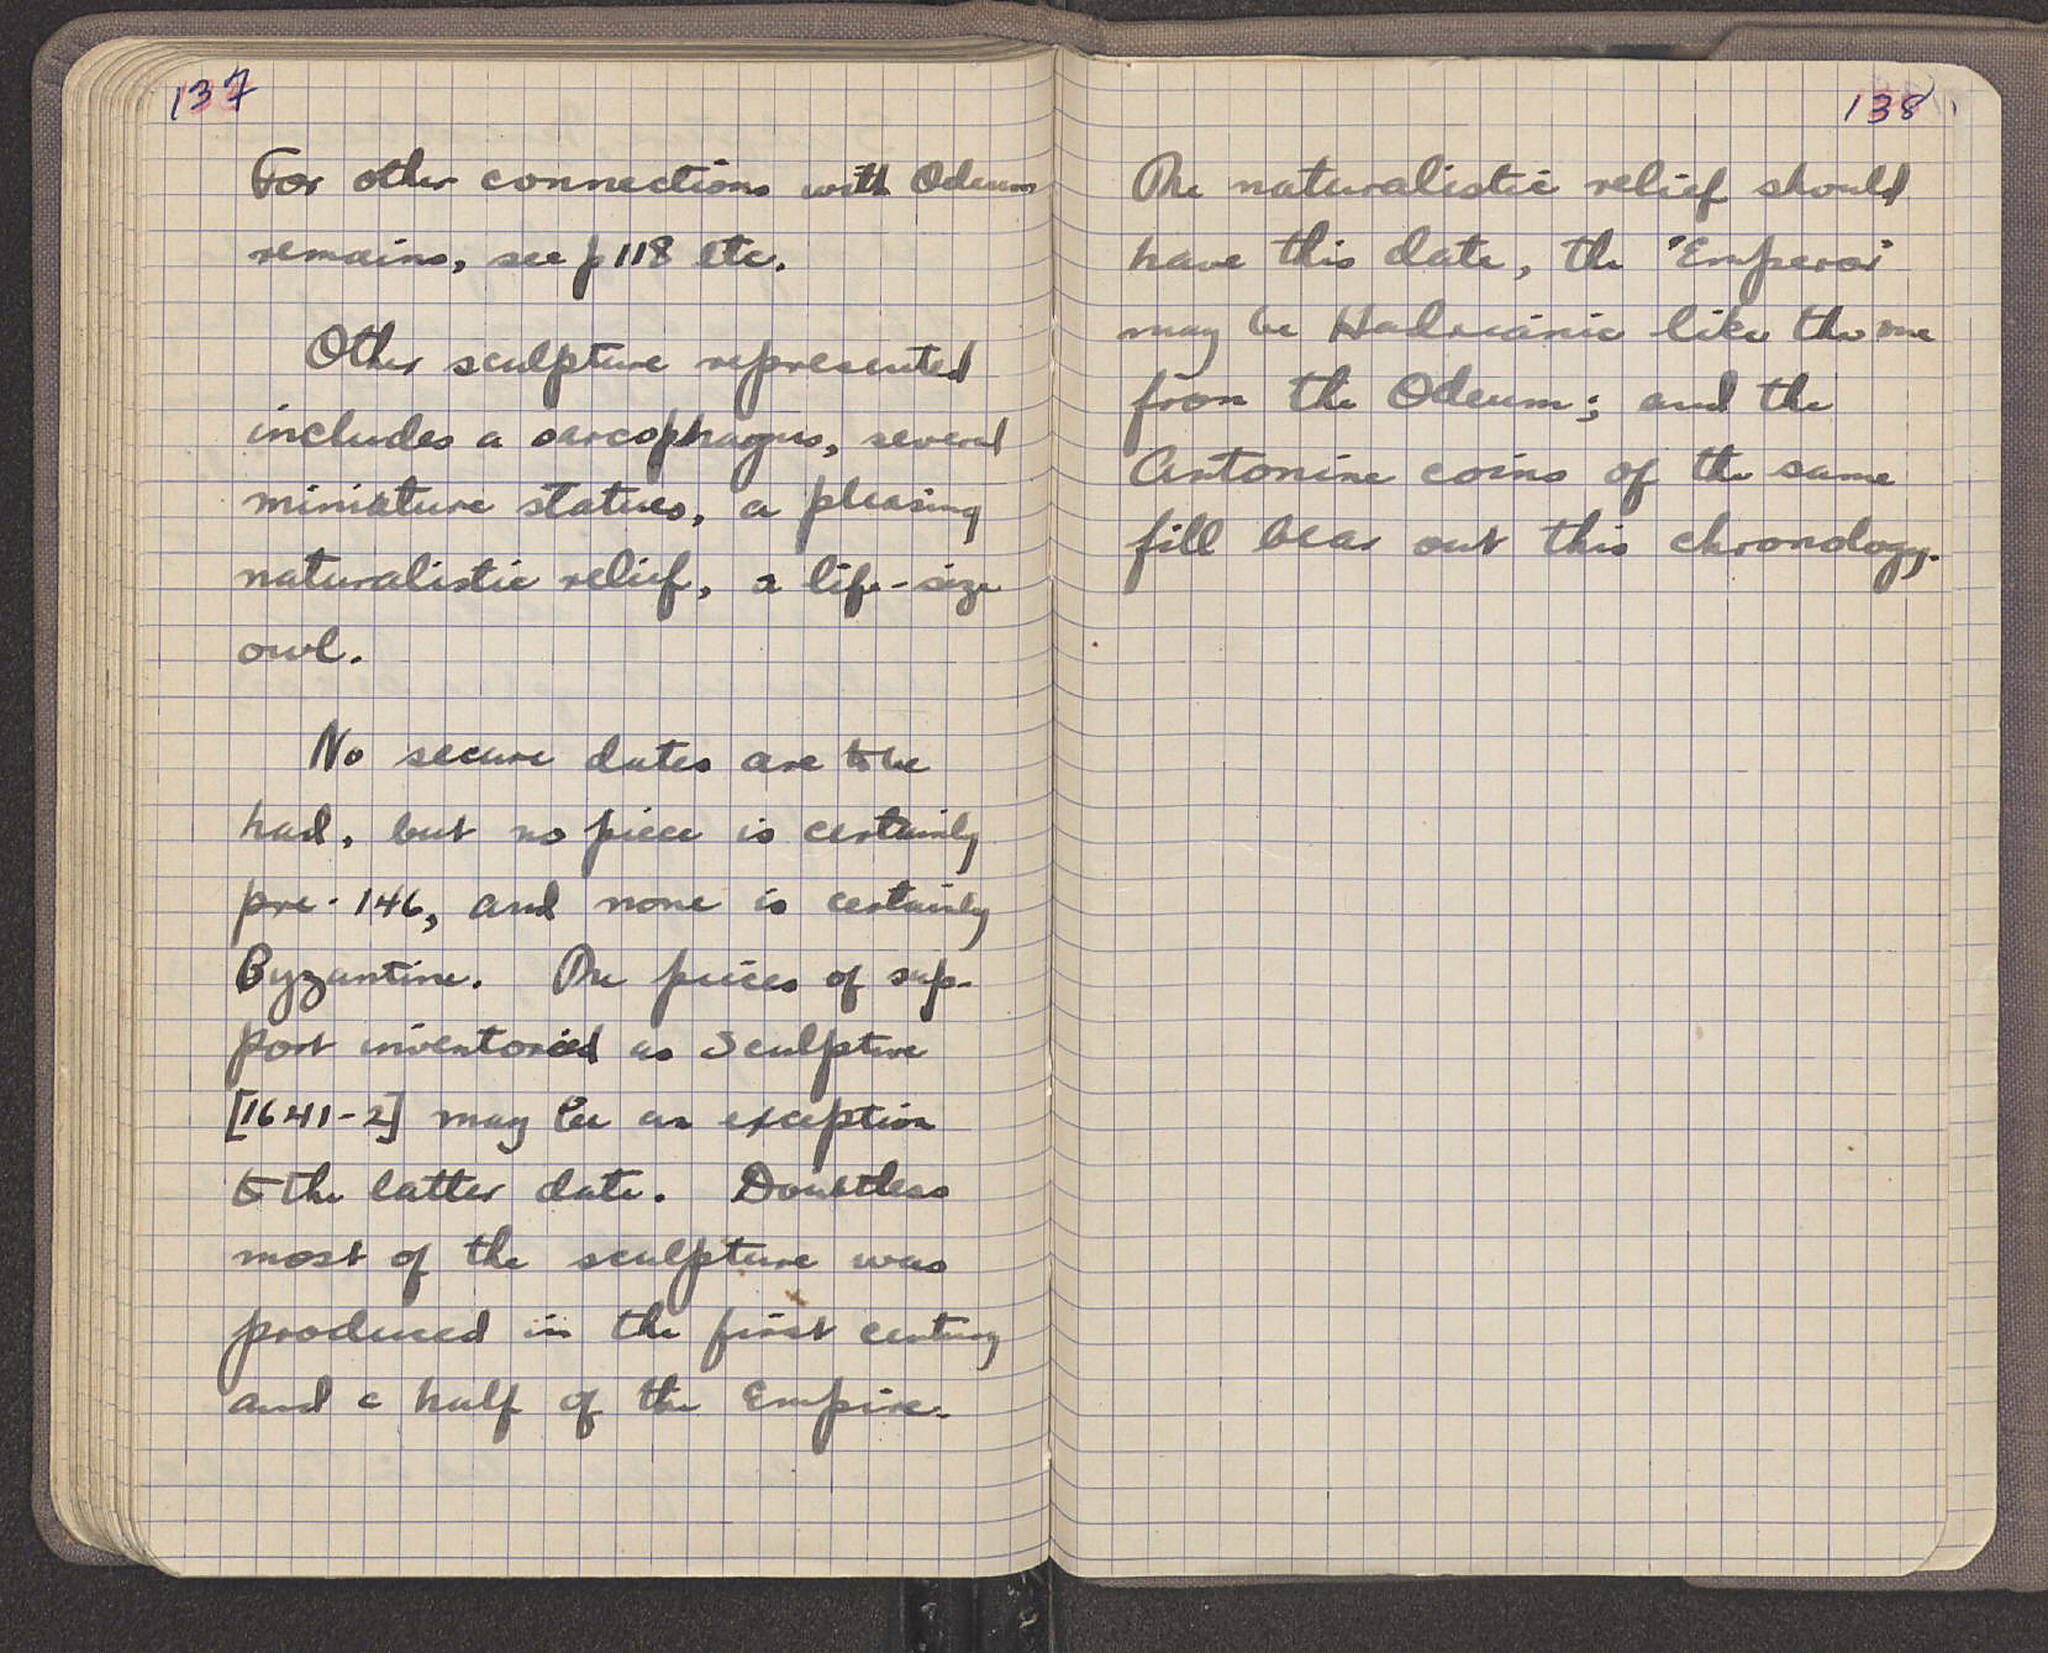 137
For other connections with Odeum
remains, see p 118 etc.
Other sculpture represented
includes a sarcophagus, several
miniature statues, a pleasing
naturalistic relief, a life-size
owl.
No secure dates are to be
had, but no piece is certainly
pre-146, and none is certainly
Byzantine. The pieces of sup-
port inventoried as Sculpture
[1641-2] may be an exception
to the latter date. Doubtless
most of the sculpture was
produced in the first century
and a half of the Empire.
138
The naturalistic relief should
have this date, the 'Emperor'
may be Hadrianic like the one
from the Odeum; and the
Antonine coins of the same
fill bear out this chronology.